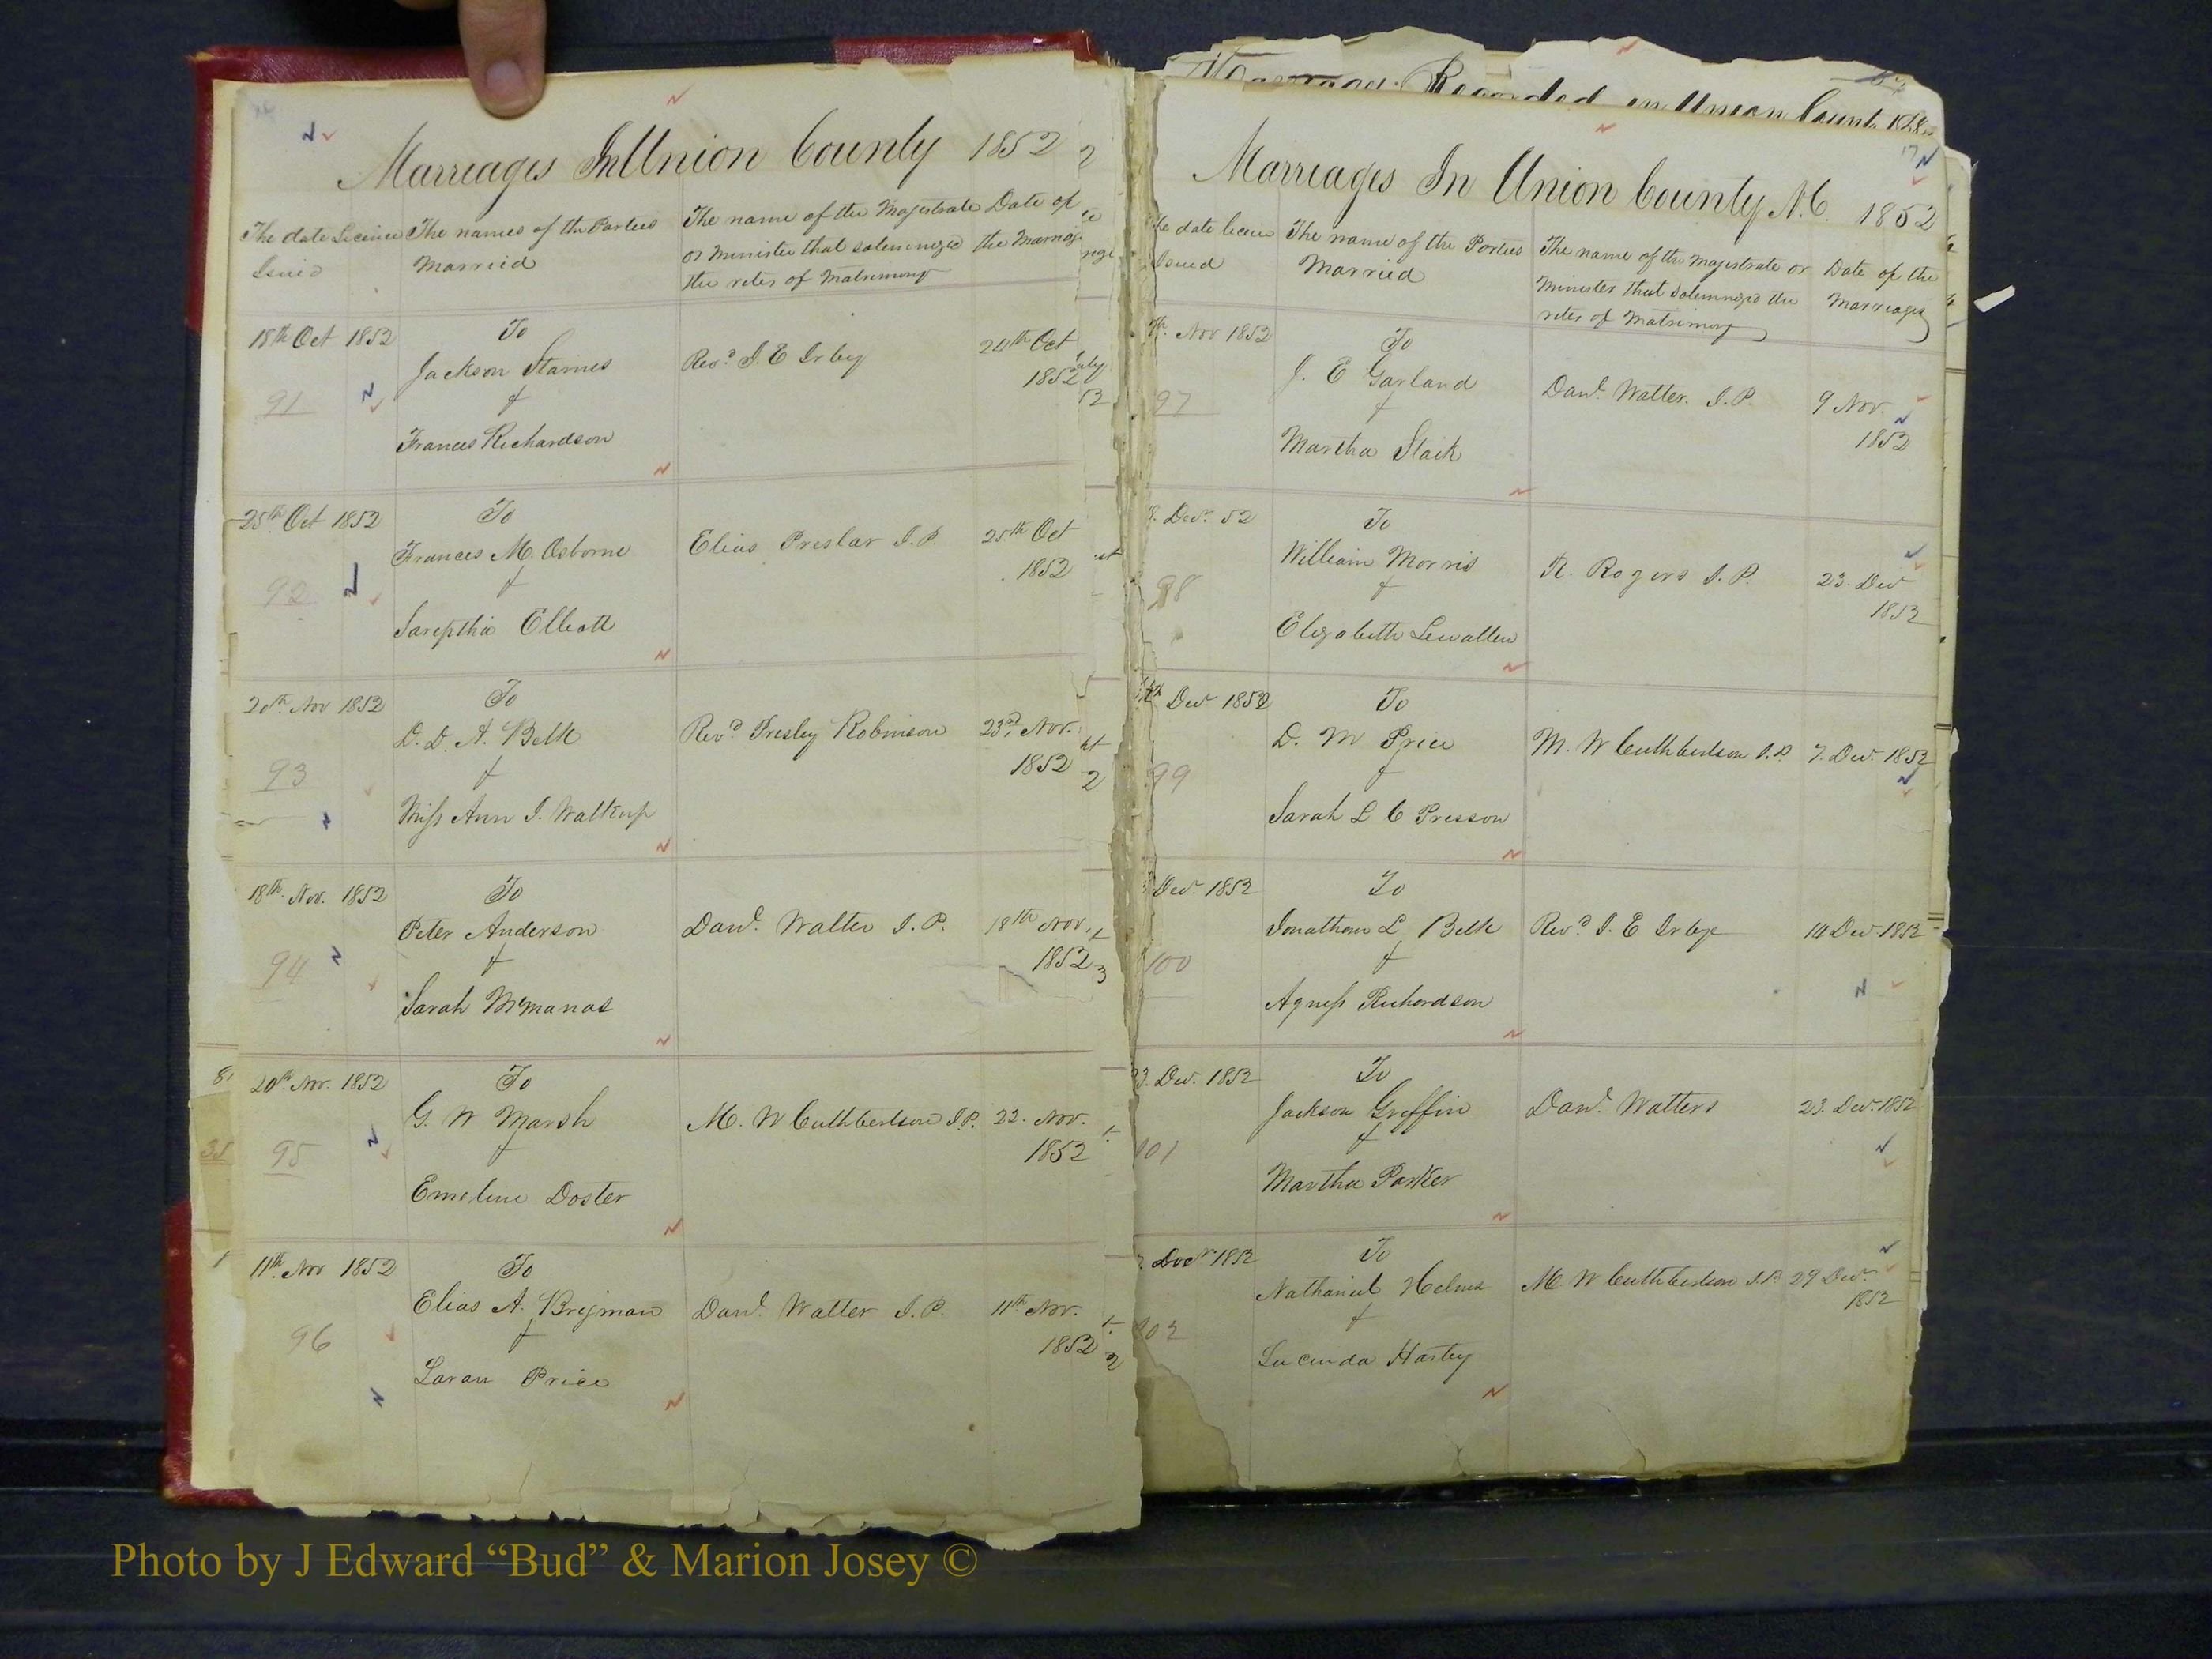 Marriages In Union County 1852
The date Licence The names of the Parties The name of the Majestrate Date of
Issued Married or Minister that solemnized the Marriage
the rites of Matrimony
18th Oct 1852 To
Jackson Starnes Revd. J. E Irby 24th Oct
1852
91 &
Frances Richardson
25th Oct 1852 To
Frances M. Osborne Elias Preslar J. P. 25th Oct
1852
92 &
Sareptha Elliott
20th Nov 1852 To
D. D. A. Belk Revd Presley Robinson 23rd Nov.
1852
93 &
Miss Ann J. Walkup
18th Nov. 1852 To
Peter Anderson Danl. Walter J. P. 18th Nov.
1852
94 &
Sarah McManas
20th Nov. 1852 To
G. W Marsh M. W Cuthbertson J.P. 22. Nov.
1852
95 &
Emeline Doster
11th Nov 1852 To
Elias A. Brijman Danl. Walter J. P. 11th Nov.
1852
96 &
Laran Price
Recorded in Union
Marriages In Union County N.C. 1852
date The name of the Parties The name of the Majestrate or Date of the
Issued Married Minister that Solemnized the Marriages
rites of Matrimony
Nov 1852 To
J. E Garland Danl. Walter. J. P. 9 Nov.
1852
97 &
Martha Stack
Decr. 52 To
William Morris R. Rogers J. P. 23. Decr
1852
98 &
Elizabeth Lewallen
Decr 1852 To
D. M Price M. W Cuthbertson J.P. 7. Decr. 1852
99 &
Sarah L C Presson
Decr. 1852 To
Jonathan L Belk Revd. J. E Irby 14 Decr. 1852
100 &
Agness Richardson
3. Decr. 1852 To
Jackson Griffin Danl. Walters 23. Decr. 1852
101 &
Martha Parker
Decr 1852 To
Nathaniel Helms M. W Cuthbertson J.P. 29 Decr.
1852
102 &
Lucinda Hasty
Photo by J Edward “Bud” & Marion Josey ©